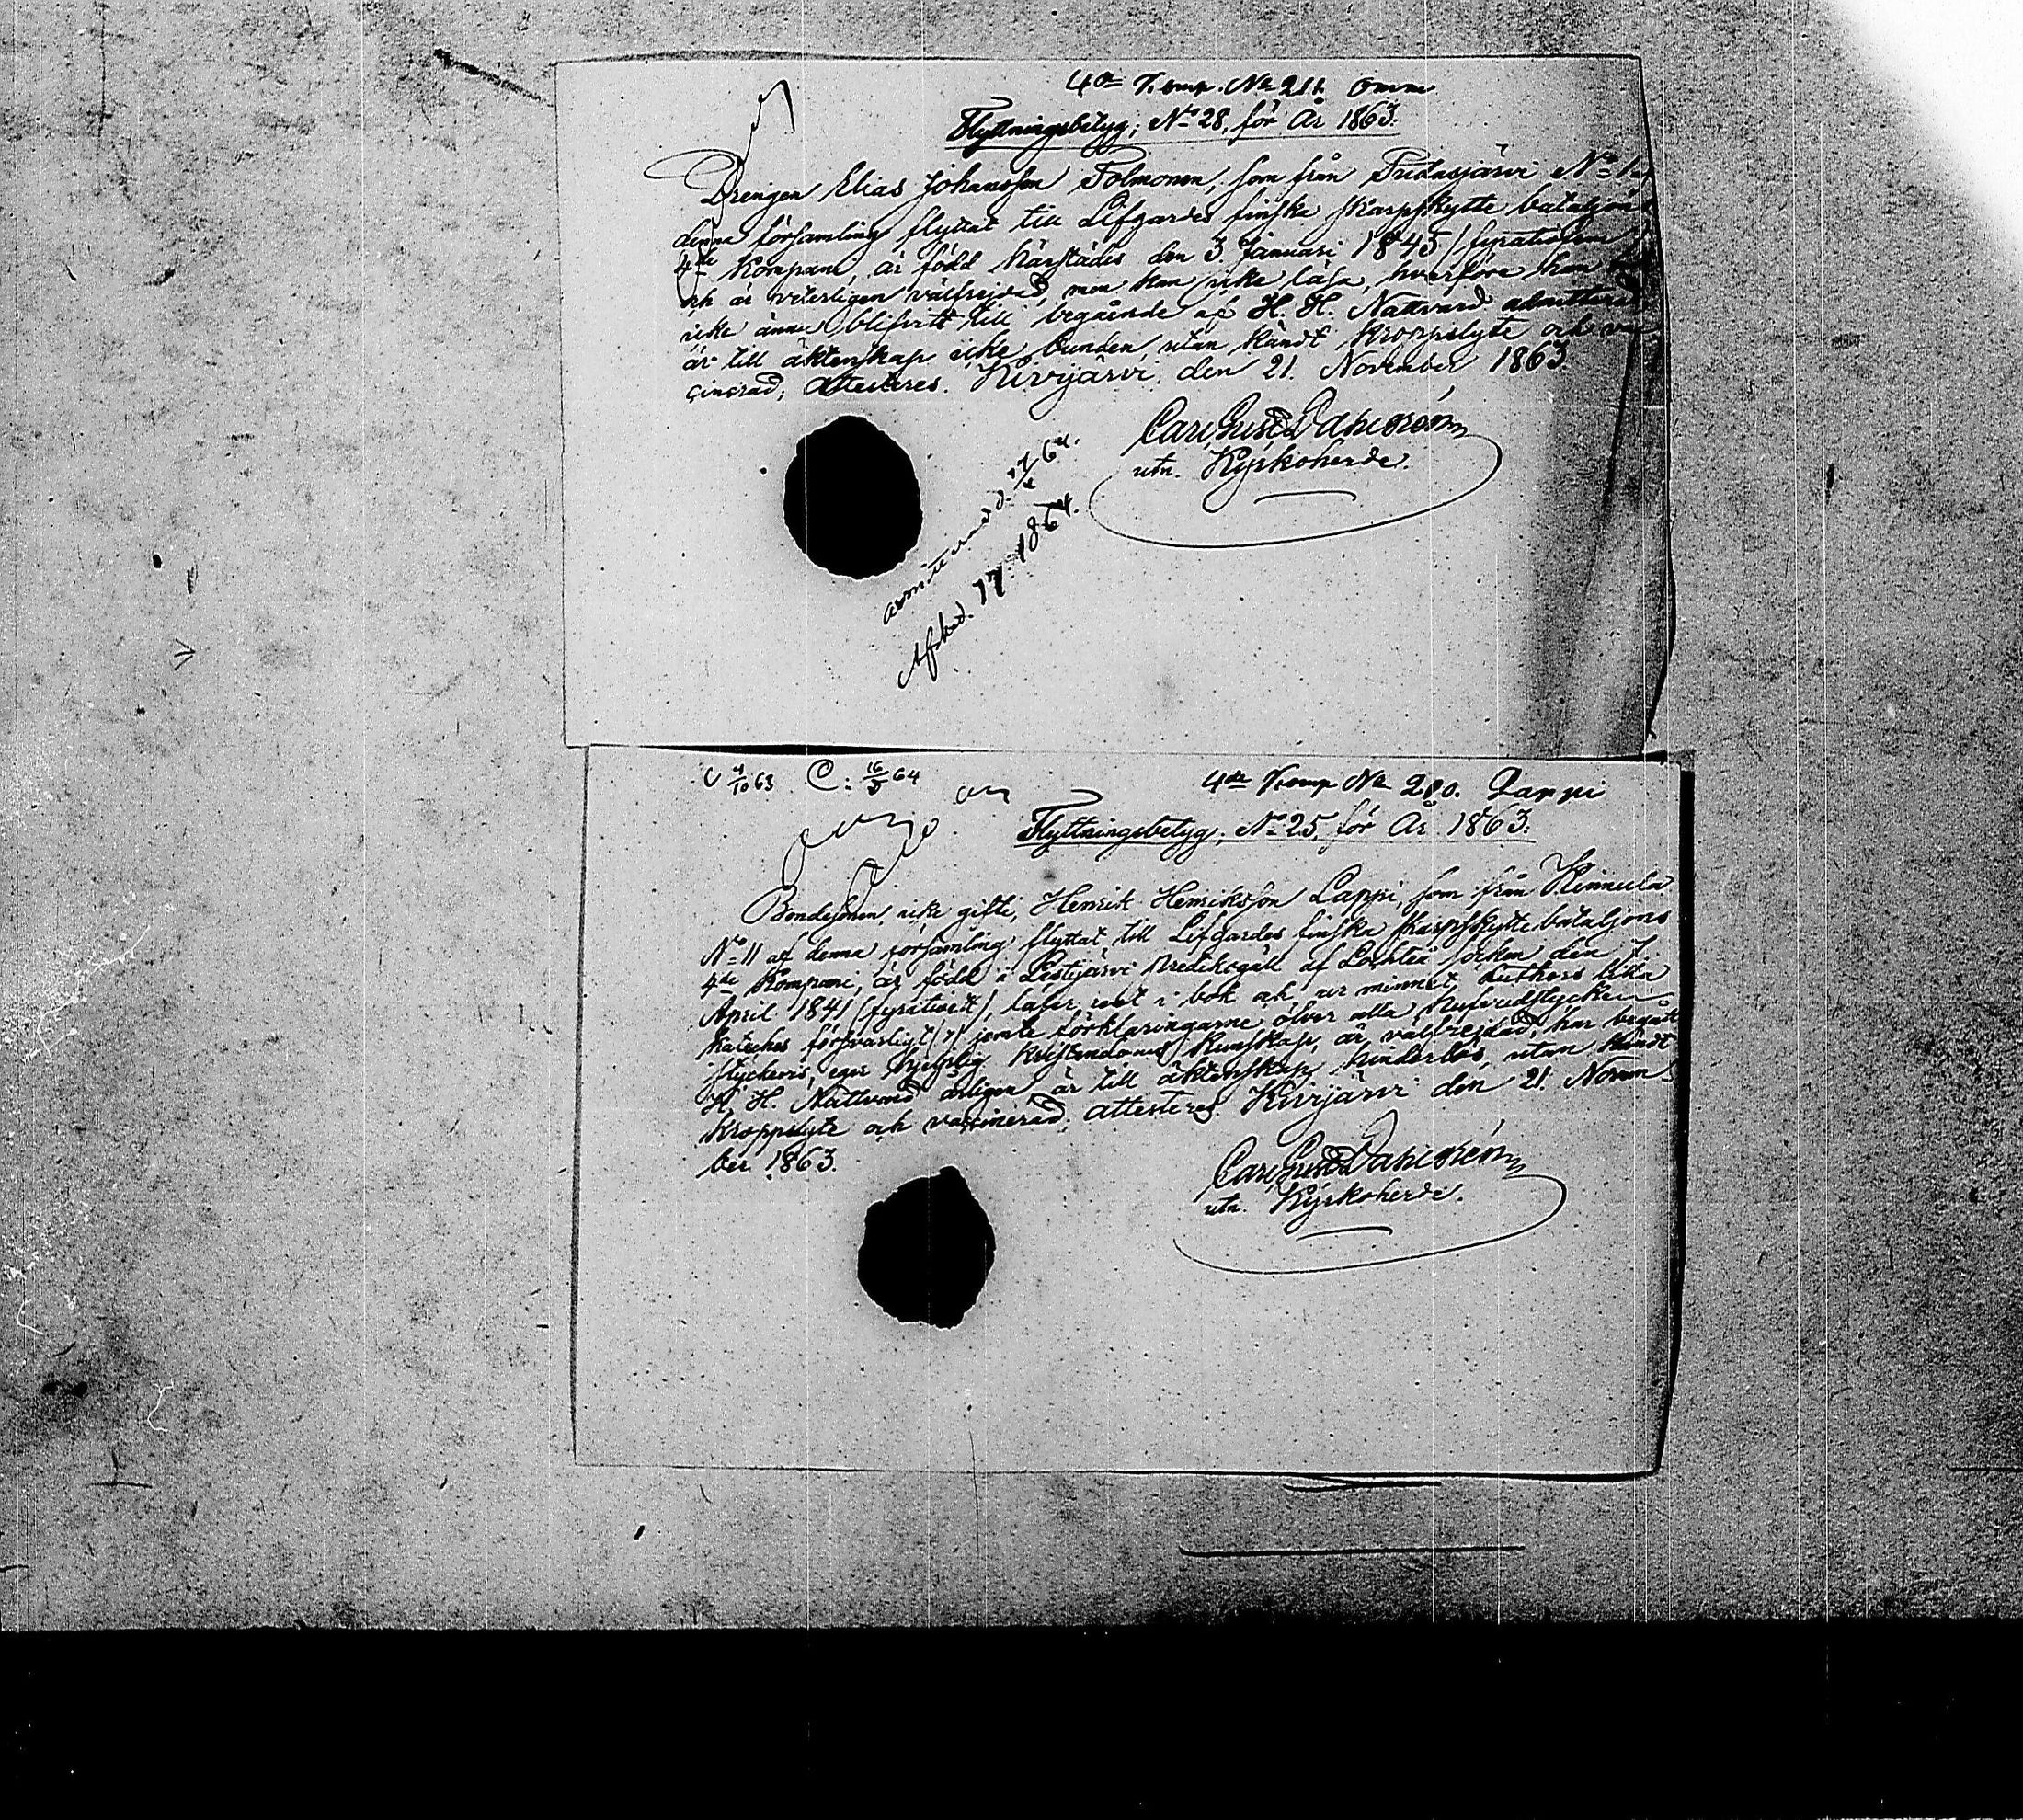 4de Komp. No 211. Omm
Flyttningsbetyg, No 28, för År 1863.
Drengen Elias Johansson Tolmonen, som från Pudasjärvi No 1 af
denna församling flyttat till Lifgardes finska skarpskytte bataljons
4de Kompani, är född härstädes den 3 Januari 1845 /fyratiofem/,
och är veterligen välfrejdad, men kan icke läsa, hvarföre han
icke ännu blifvitt till begående af H. H. Nattvard admitterad,
är till äktenskap icke bunden, utan kändt kroppslyte och vac-
cinerad; attesteres. Kivijärvi, den 21. November 1863.
Carl Gust Dahlgrén
utn. Kyrkoherde.
admitterad d. 64.
Afsked. 17 1864.
4/10 63 C: 64
4de Komp No 280. Lappi
Flyttningsbetyg, No 25, för År 1863.
Bondesonen, icke gifte, Henrik Henriksson Lappi, som från Kinnula
No 11 af denna församling flyttat till Lifgardes finska skarpskytte bataljons
4de Kompani, är född i Lestijärvi Predikogäll af Lochteå socken den 7.
April 1841 /fyratioett/, läser rent i bok och ur minnet Luthers lilla
kateches försvarligt jemte förklaringarne öfver alla hufvudstycken
styckevis, eger hjelplig kristendoms kunskap, är välfrejdad, har begått
H. H. Nattvard årligen, är till äktenskap hinderlös, utan kändt
kroppslyte och vaccinerad; attesteres. Kivijärvi den 21. Novem-
ber 1863.
Carl Gust Dahlgrén
utn. Kyrkoherde.